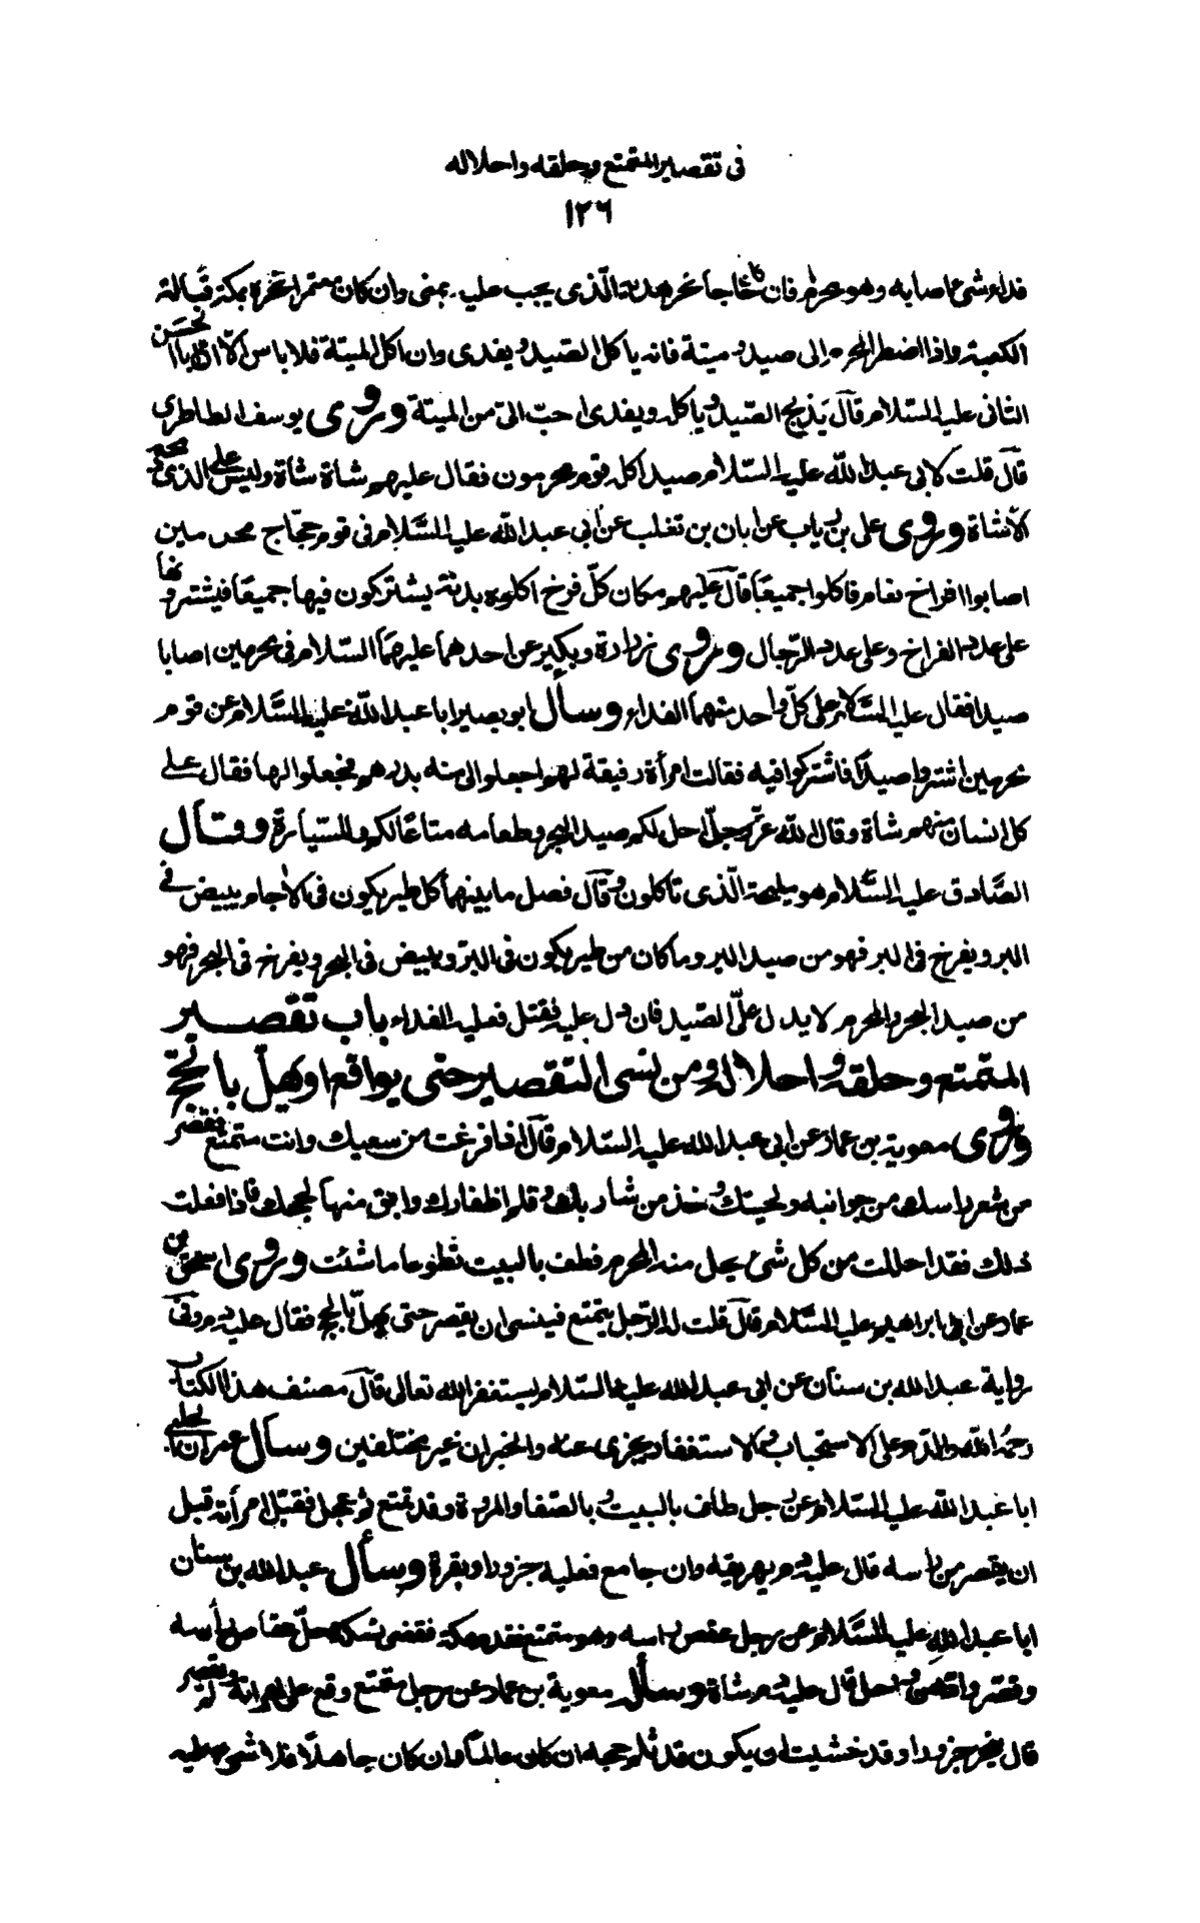 فى تقصير المتمتع وحلقه واحلاله
١٢٦
فداء شئ اصابه وهو محرم فان كان حاجا نحر هديه الّذى يجب عليه بمنى وان كان معتمرا نحره بمكة قبالة
الكعبة واذا اضطر المحرم الى صيد وميتة فانه ياكل الصّيد ويفدى وان اكل الميتة فلا باس الاّ ان ابا الحسن
الثانى عليه السّلام قال يذبح الصّيد وياكله ويفدى احبّ الىّ من الميتة وروى يوسف الطاطرى
قال قلت لابى عبد الله عليه السّلام صيد اكله قوم محرمون فقال عليهم شاة شاة وليس على الذى ذبحه
الاّ شاة وروى على بن رياب عن ابان بن تغلب عن ابى عبد الله عليه السّلام فى قوم حجّاج محرمين
اصابوا افراخ نعام فاكلوا جميعًا قال عليهم مكان كلّ فرخ اكلوه بدنة يشتركون فيها جميعًا فيشترونها
على عدد الفراخ وعلى عدد الرّجال وروى زرارة وبكير عن احدهما عليهما السّلام فى محرمين اصابا
صيدا فقال عليه السّلام على كلّ واحد منهما الفداء وسأل ابو بصير ابا عبد الله عليه السّلام عن قوم
محرمين اشتروا صيدًا فاشتركوا فيه فقالت امرأة رفيقة لهم اجعلوا لى منه بدرهم فجعلوا لها فقال على
كل انسان منهم شاة وقال الله عزّ وجلّ احل لكم صيد البحر وطعامه متاعًا لكم وللسّيارة وقال
الصّادق عليه السّلام هو مليحة الّذى تاكلون وقال فصل ما بينهما كل طير يكون فى الاجام يبيض فى
البر ويفرخ فى البر فهو من صيد البر وما كان من طير يكون فى البرّ ويبيض فى البحر ويفرخ فى البحر فهو
من صيد البحر والمحرم لا يدل على الصّيد فان دل عليه فقتل فعليه الفداء باب تقصير
المتمتع وحلقه واحلاله ومن نسى التقصير حتى يواقع او يهلّ بالحجّ
وروى معوية بن عمار عن ابى عبد الله عليه السّلام قال اذا فرغت من سعيك وانت متمتع فقصر
من شعر راسك من جوانبه ولحيتك وخذ من شاربك وقلم اظفارك وابق منها لحجك فاذا فعلت
ذلك فقد احللت من كل شئ يحل منه المحرم فطف بالبيت تطوعا ما شئت وروى اسحق بن
عمار عن ابى ابراهيم عليه السّلام قال قلت له الرّجل يتمتع فينسى ان يقصر حتى يهلّ بالحج فقال عليه دم وفى
رواية عبد الله بن سنان عن ابى عبد الله عليه السّلام يستغفر الله تعالى قال مصنف هذا الكتاب
رحمه الله والدّم على الاستحباب والاستغفار يجزى عنه والخبران غير مختلفين وسأل عمران الحلبى
ابا عبد الله عليه السّلام عن رجل طاف بالبيت وبالصّفا والمروة وقد تمتع ثم عجل فقبّل امرأته قبل
ان يقصر من راسه قال عليه دم يهريقه وان جامع فعليه جزور او بقرة وسأل عبد الله بن سنان
ابا عبد الله عليه السّلام عن رجل عقص راسه وهو متمتع فقدم مكة فقضى نسكه وحلّ عقاص رأسه
وقصّر وادّهن واحل قال عليه دم شاة وسأله معوية بن عمار عن رجل متمتع وقع على امرأته ولم يقصر
قال ينحر جزورا وقد خشيت ان يكون قد ثلم حجه ان كان عالمًا وان كان جاهلًا فلا شئ عليه